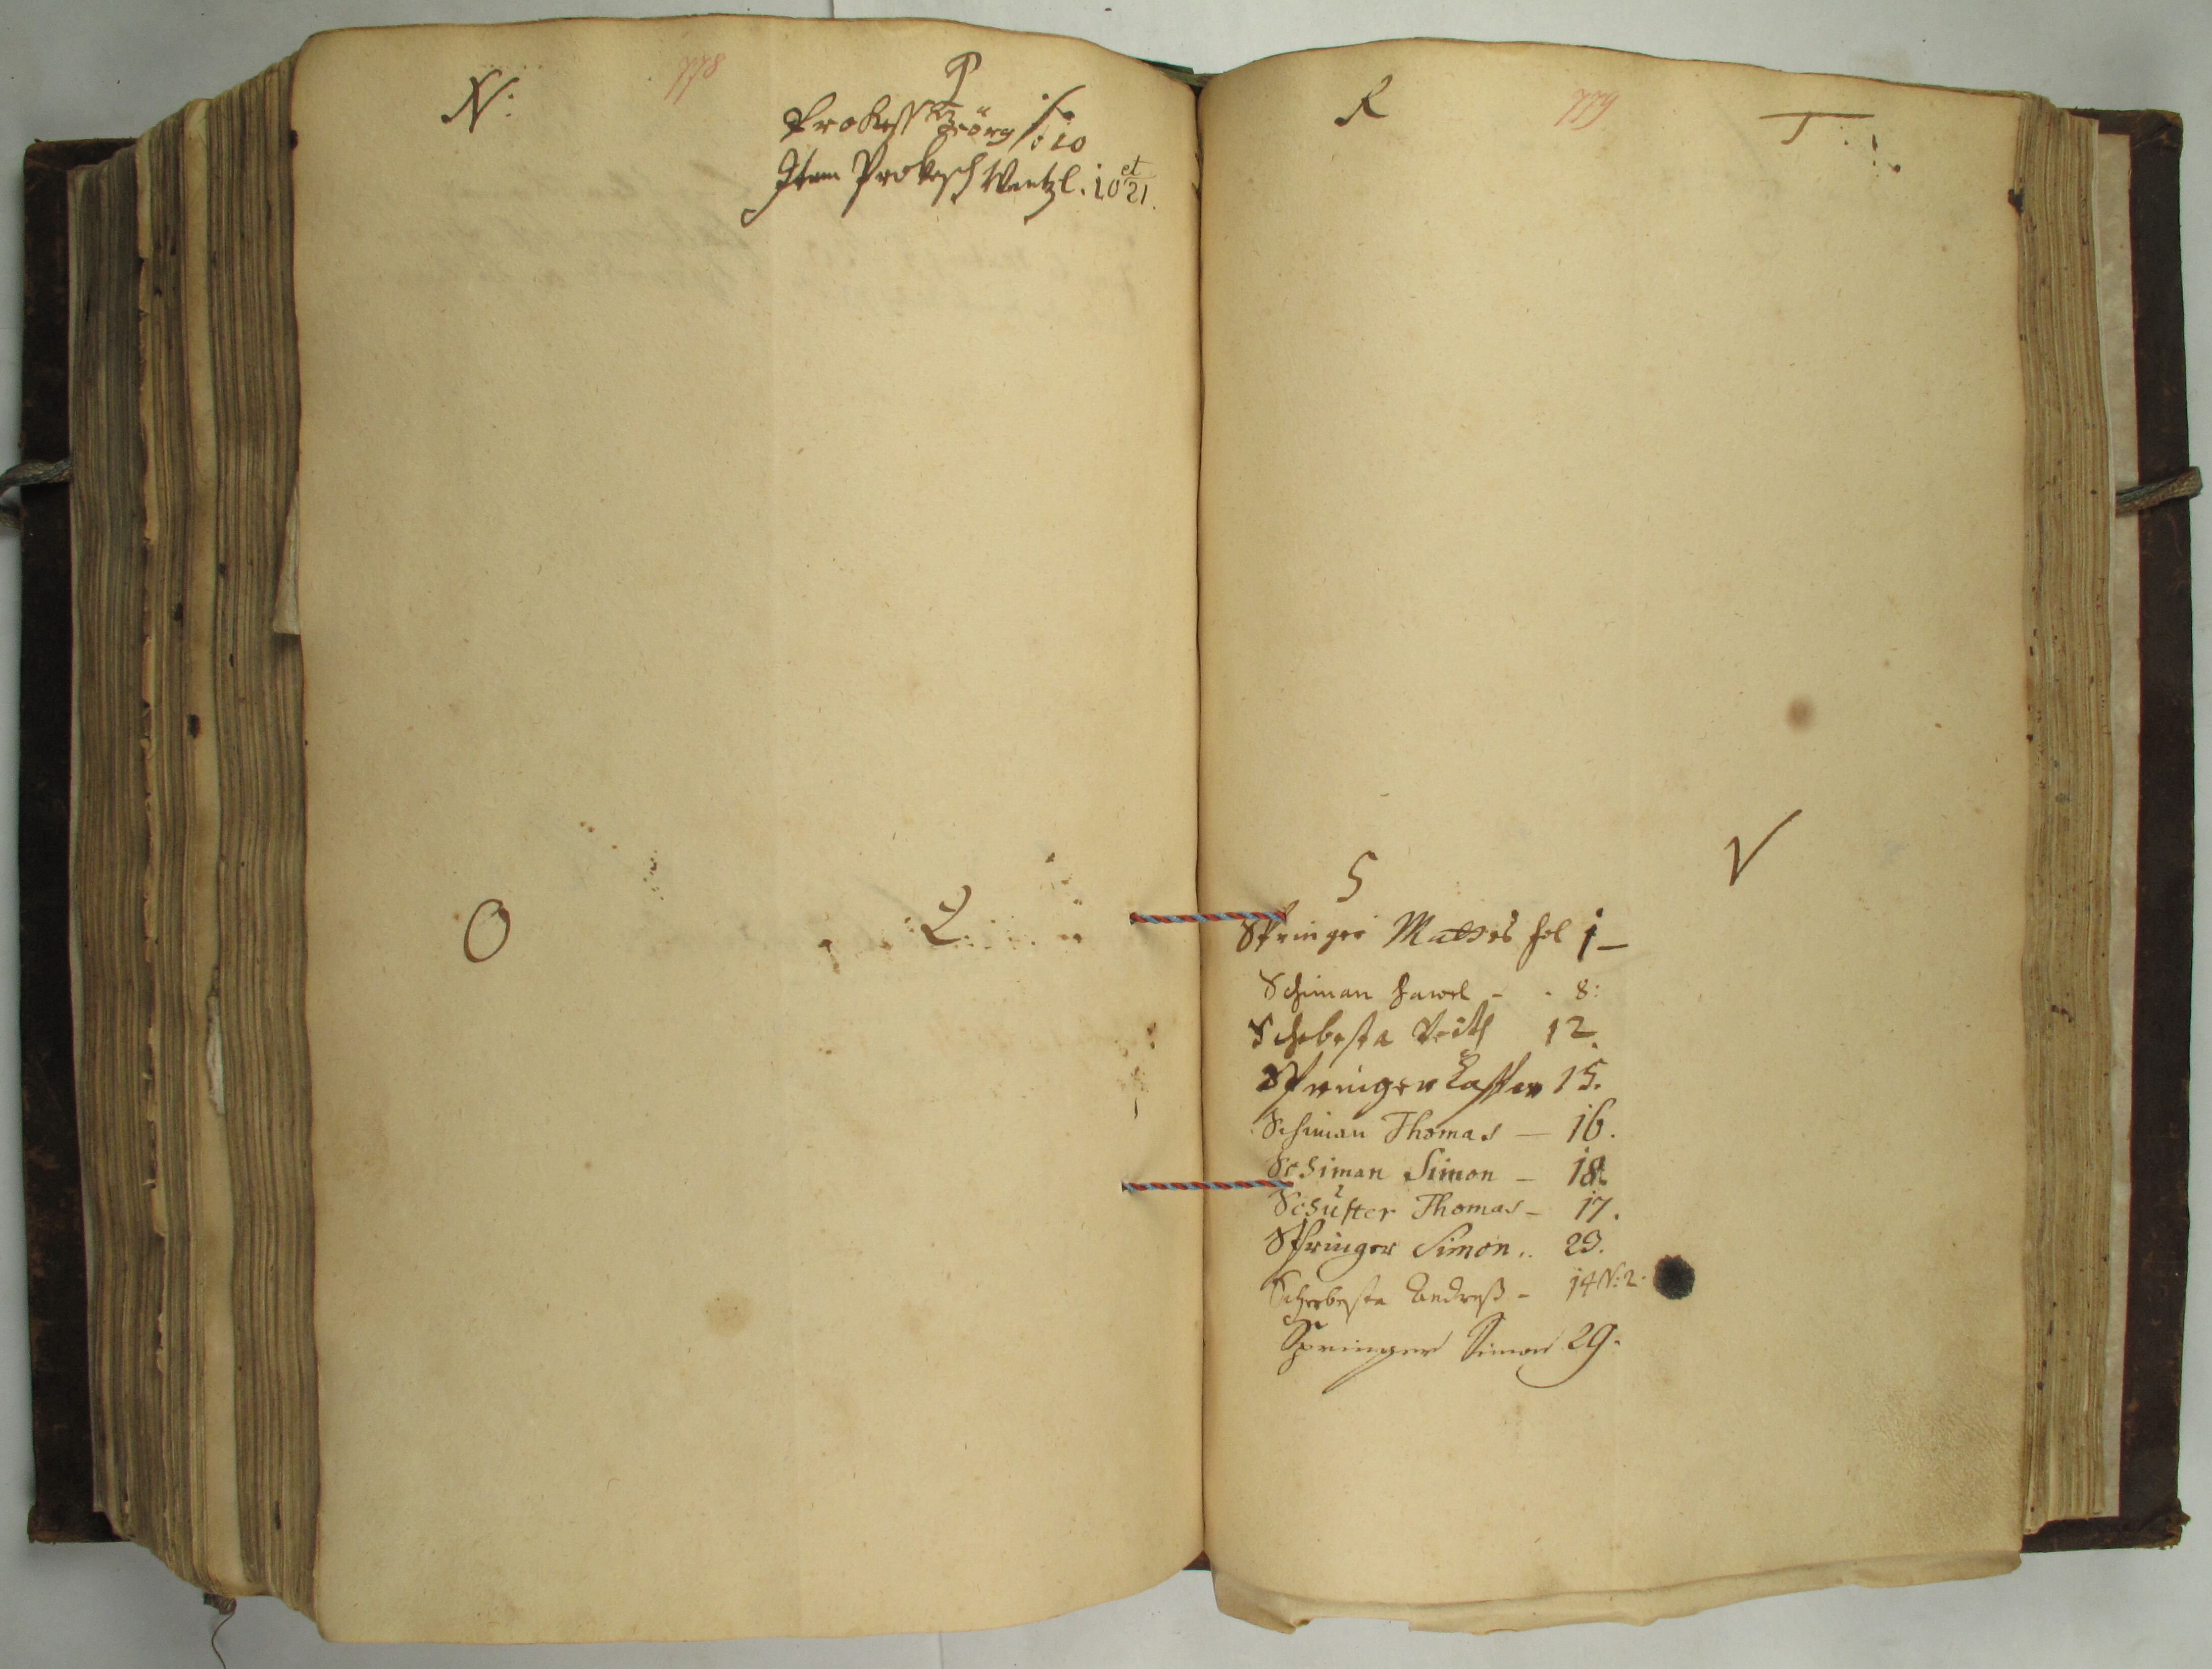 N:
778
P
Prokesch Görg fo: 10
Item Prokesch Wentzl. 10 et 21.
O
Q
R
779
T
S
Springer Mathes fol 1 –
Schiman Pawel – - 8:
Schebesta Veith 12.
Springer Casper 15.
Schiman Thomas – 16.
Schiman Simon – 18.
Schuster Thomas – 17.
Springer Simon .. 23.
Schebesta Andreß – 14 N: 2.
Springer Simon 29.
V